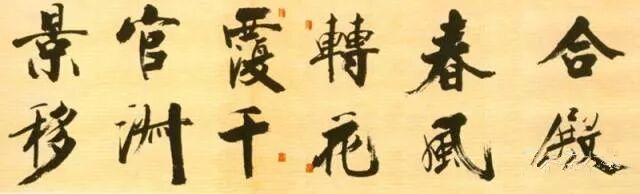 合殿
春風
轉花
覆千
官淑
景移